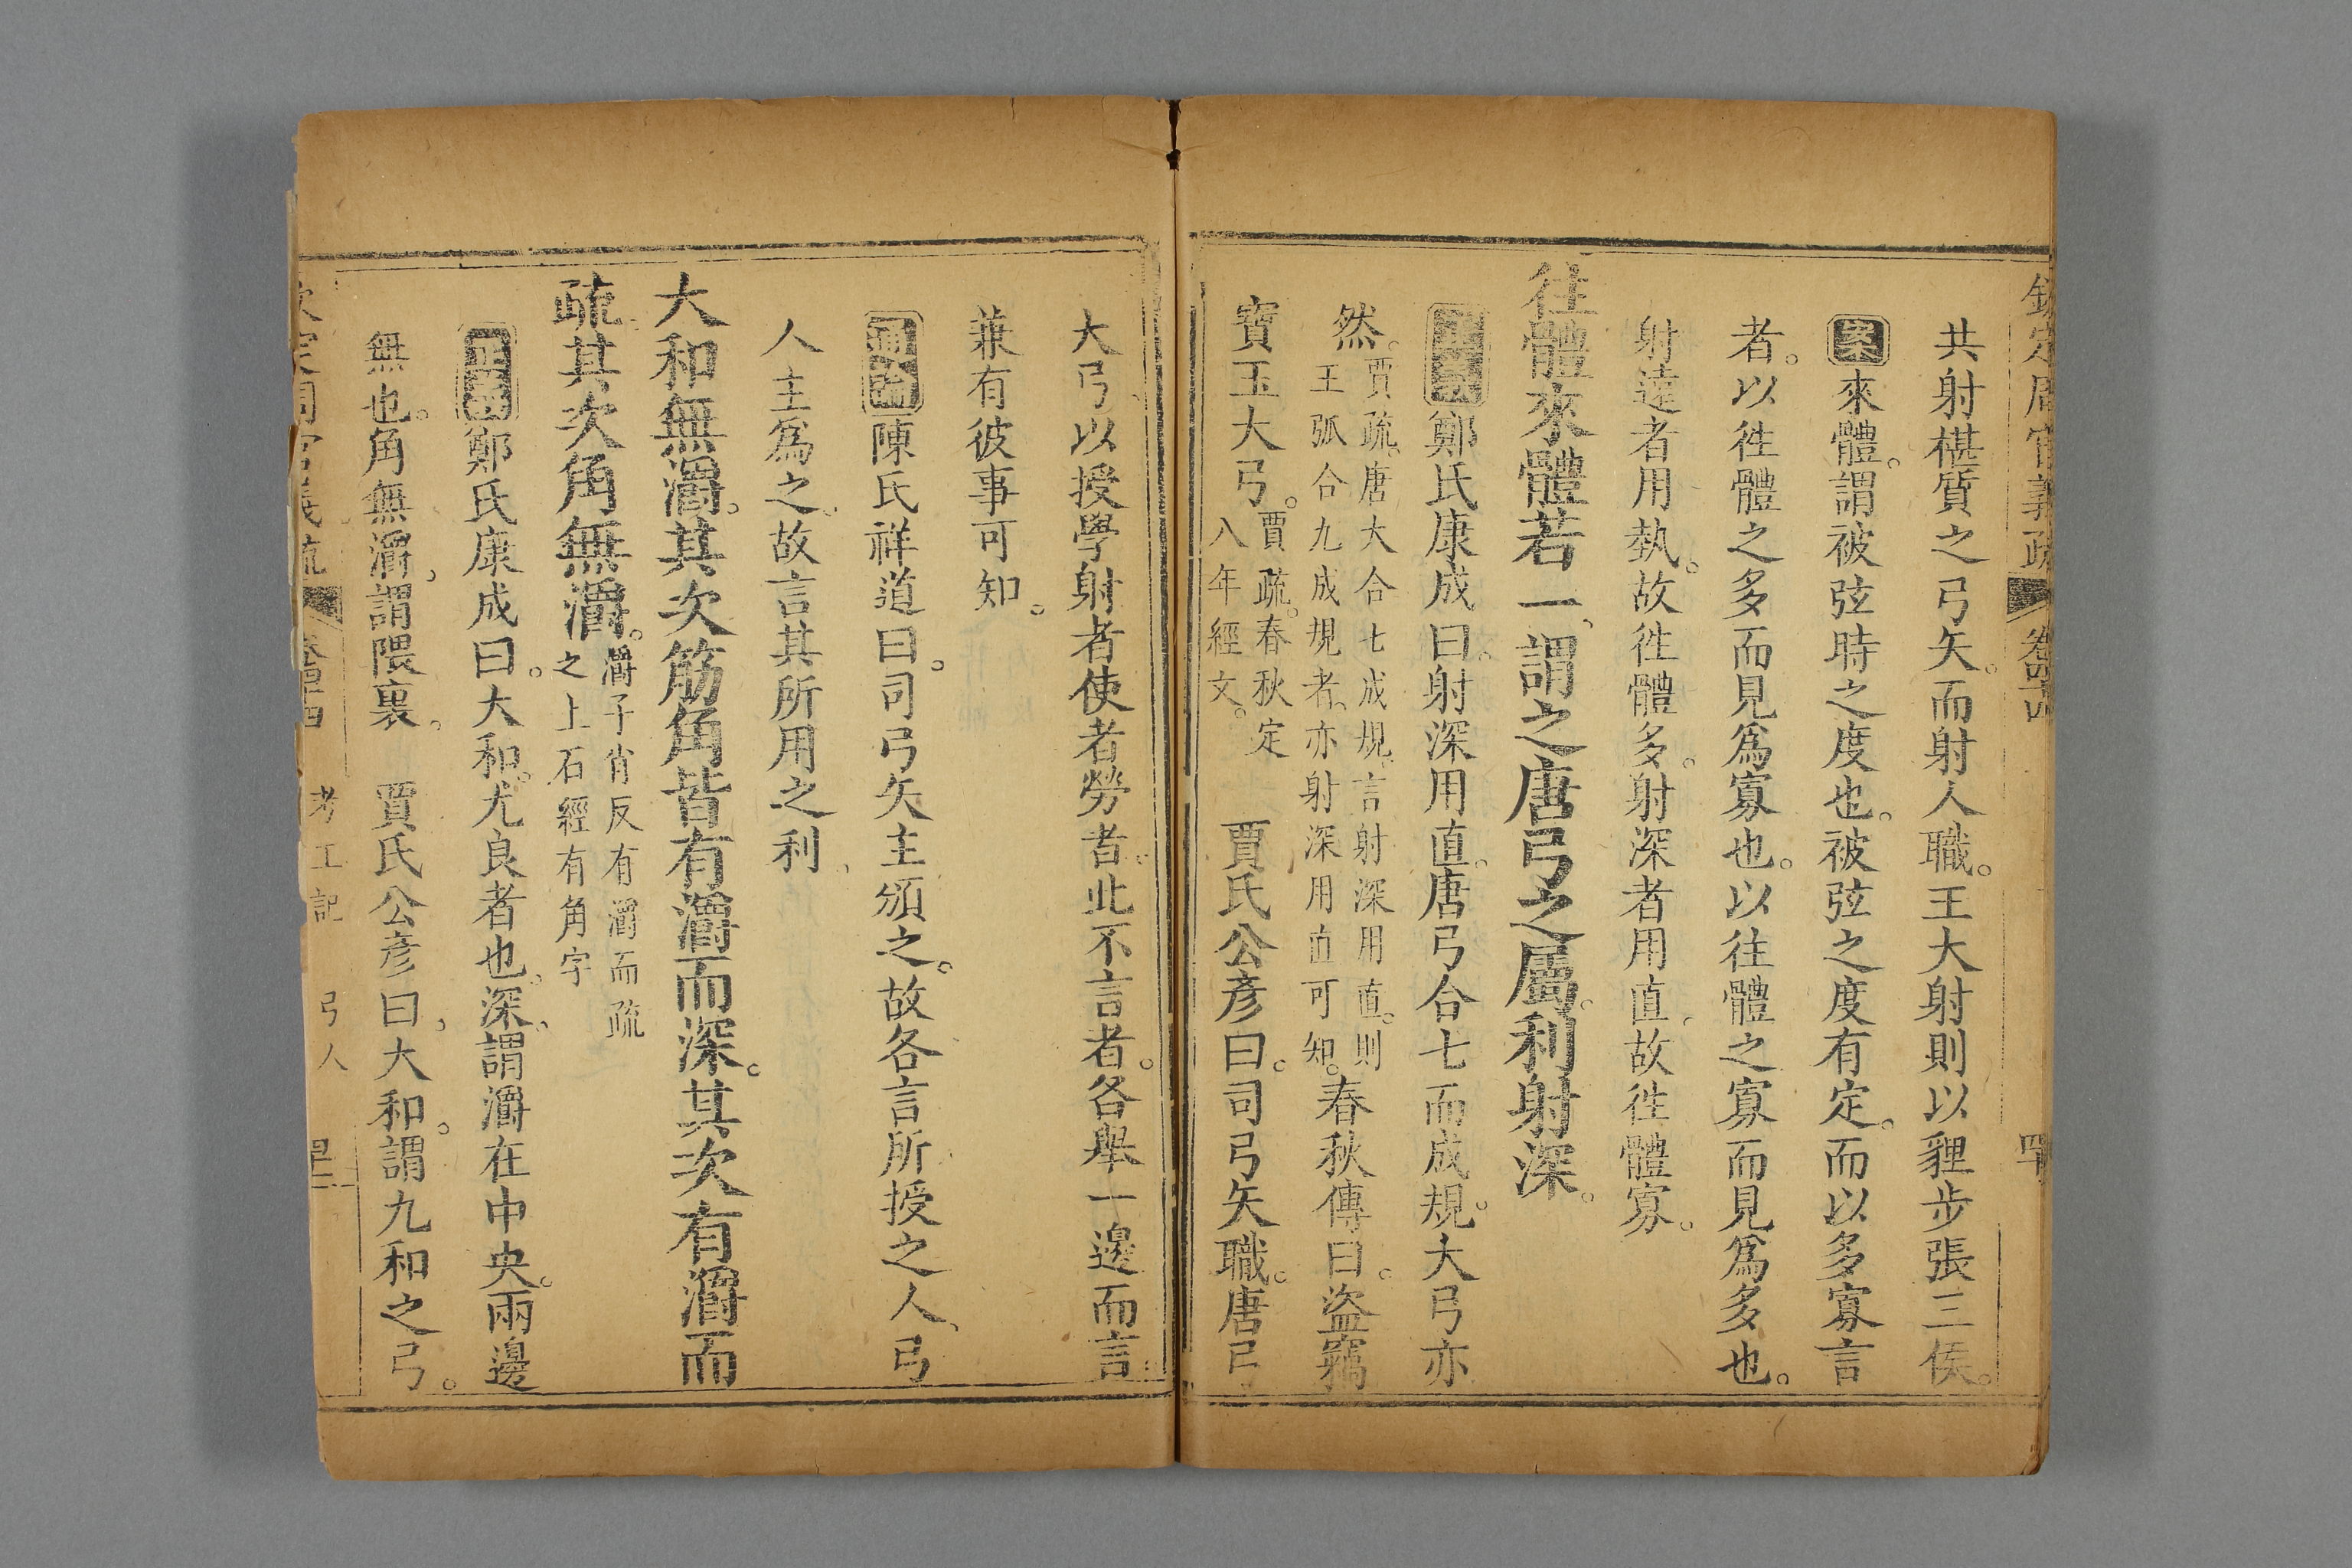 欽定周官義疏 卷四十四 四十
共射椹質之弓矢。而射人職。王大射則以貍步張三侯。
案來體。謂被弦時之度也。被弦之度有定。而以多寡言
者。以徃體之多而見為寡也。以往體之寡而見為多也。
射遠者用埶。故徃體多。射深者用直。故徃體寡。
往體來體若一、謂之唐弓之屬。利射深。
鄭氏康成曰。射深用直。唐弓合七而成規。大弓亦
然。賈疏。唐大合七成規。言射深用直。則
王弧合九成規者。亦射深用直可知。春秋傳曰。盜竊
寶玉大弓。賈疏。春秋定
八年經文。 賈氏公彥曰。司弓矢職。唐弓
大弓、以授學射者使者勞者。此不言者。各舉一邊而言
兼有彼事可知。
通論陳氏祥道曰。司弓矢主頒之。故各言所授之人、弓
人主為之。故言其所用之利、
大和無灂。其次筋角皆有灂而深。其次有灂而
疏。其次角無灂。灂子肖反有灂而疏
之上石經有角字
正義鄭氏康成曰。大和。尤良者也。深。謂灂在中央。兩邊
無也。角無灂、謂隈裏。 賈氏公彥曰、大和。謂九和之弓。
周官義疏 卷四十四 考工記 弓人